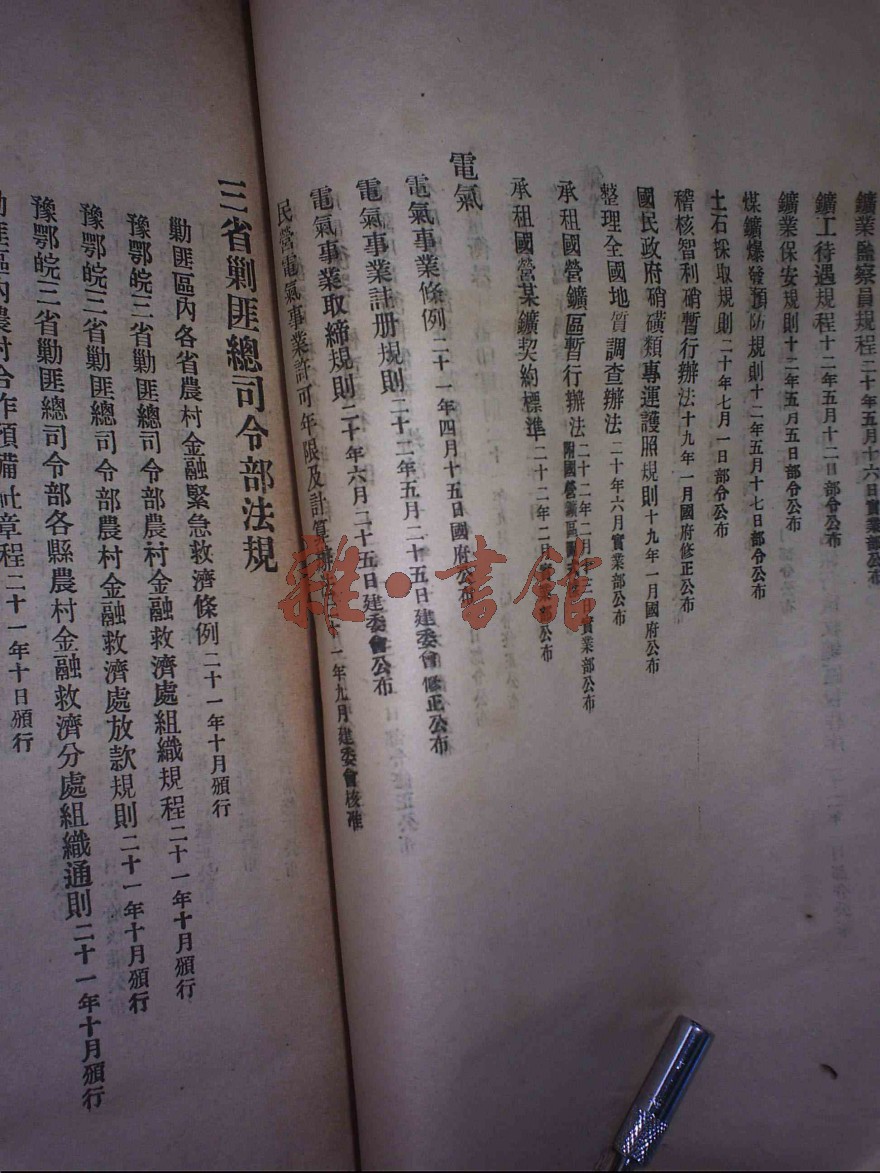 鑛業監察員規程二十年五月十六日實業部
鑛工待遇規程十二年五月十二日部令公布
鑛業保安規則十二年五月五日部令公布
煤鑛爆發預防規則十二年五月十七日部令公布
土石採取規則二十年七月一日部令公布
稽核智利硝暫行辦法十九年一月國府修正公布
國民政府硝磺類專運護照規則十九年一月國府公布
整理全國地質調查辦法二十年六月實業部公布
承租國營鑛區暫行辦法二十二年二月十三日實業部公布
承租國營某鑛契約標準二十二年二月實業部公布
電氣
電氣事業條例二十一年四月十五日國府公布
電氣事業註册規則二十二年五月二十五日建委會修正公布
電氣事業取締規則二十年六月二十五日建委會公布
民營電氣事業許可年限及計算辦法一年九月建委會核准
三省剿匪總司令部法規
勦匪區內各省農村金融緊急救濟條例二十一年十月頒行
豫鄂皖三省勦匪總司令部農村金融救濟處組織規程二十一年十月頒行
豫鄂皖三省勦匪總司令部農村金融救濟處放款規則二十一年十月頒行
豫鄂皖三省勦匪總司令部各縣農村金融救濟分處組織通則二十一年十月頒行
勦匪區內農村合作預備社章程二十一年十日頒行
雜·書舘